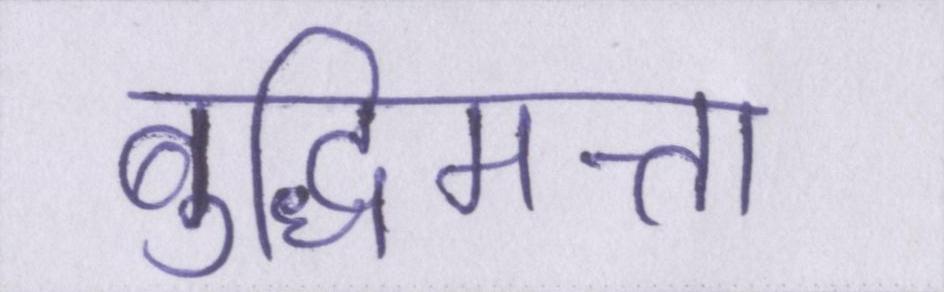 बुद्धिमत्ता